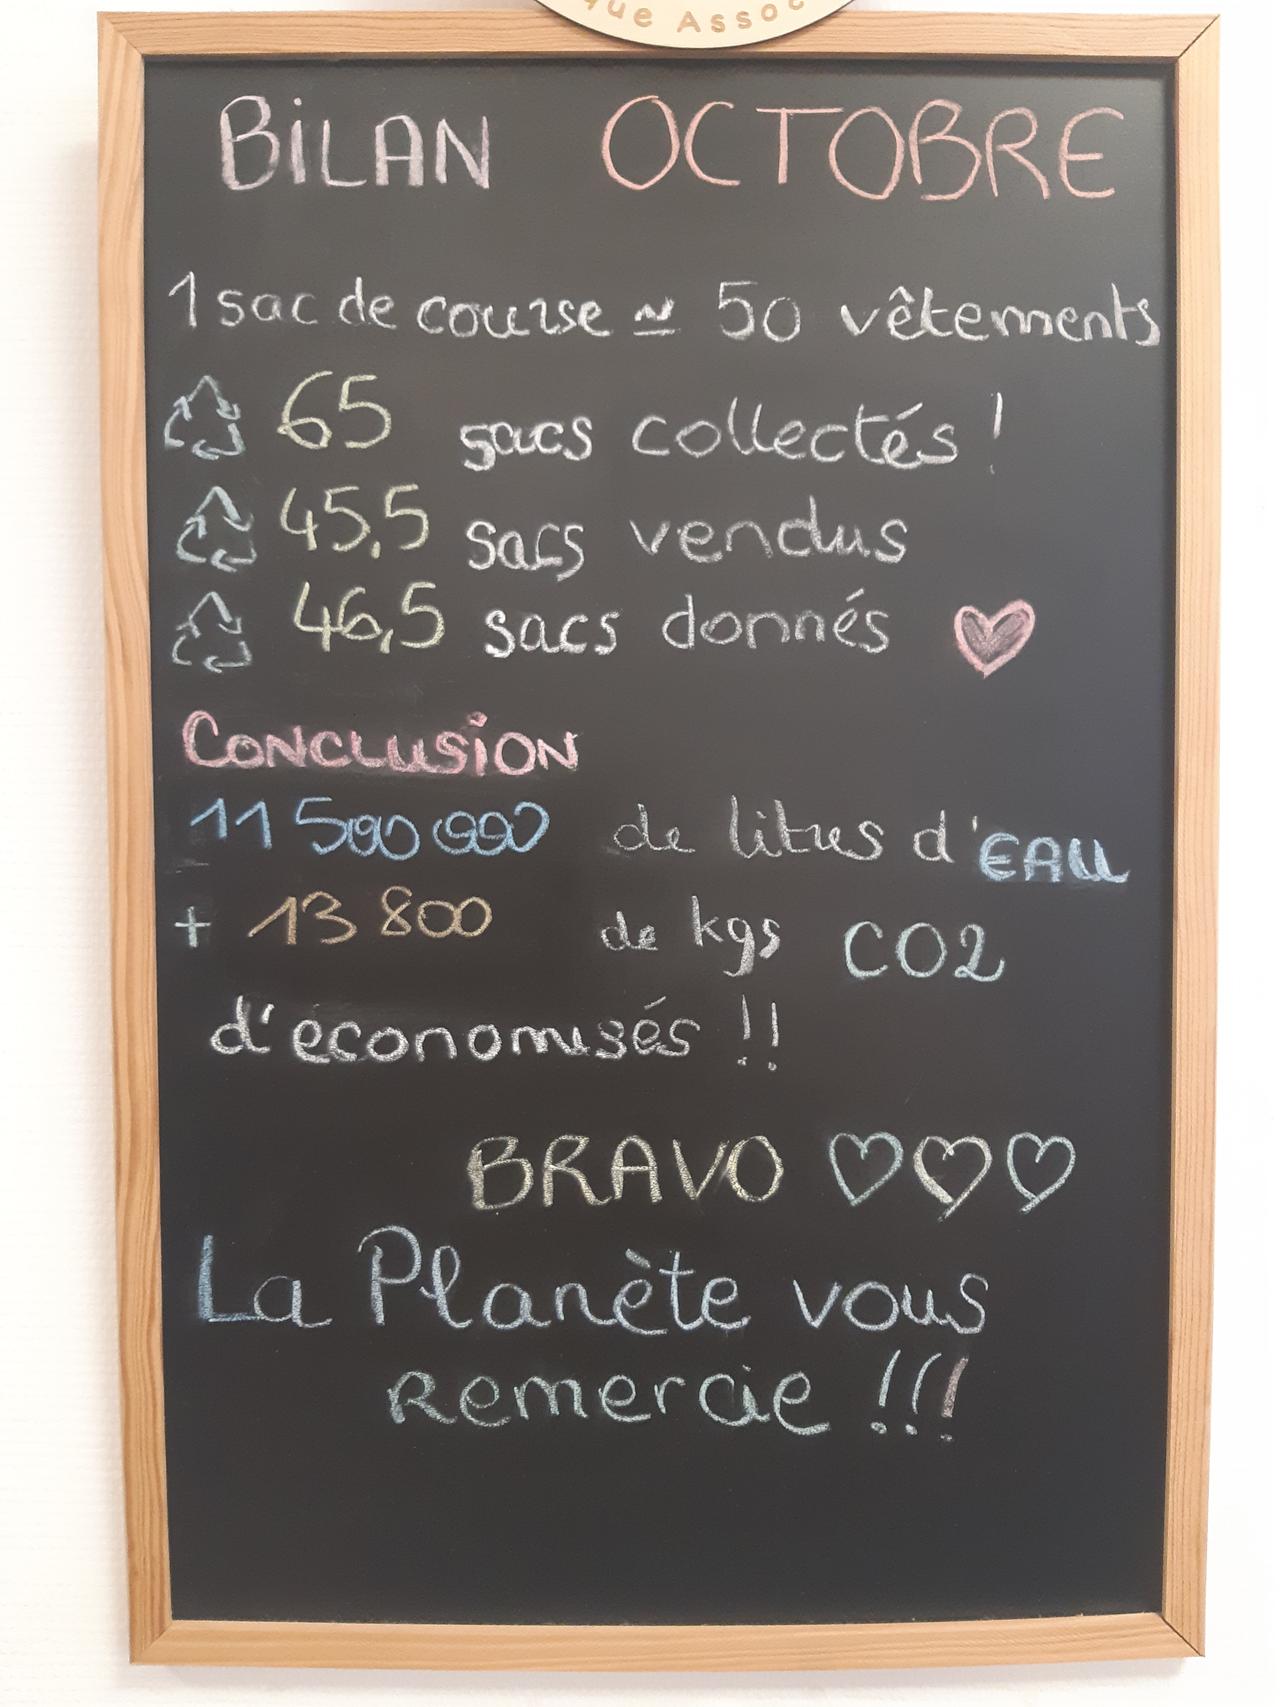 que Assoc
BiLAN OCTOBRE
1 sac de course ≃ 50 vêtements
65 sacs collectés !
45,5 sacs vendus
46,5 sacs donnés
CONCLUSiON
11 500 000 de litres d'EAU
+ 13 800 de kgs CO2
d'économisés !!
BRAVO ♡♡♡
La Planète vous
remercie !!!